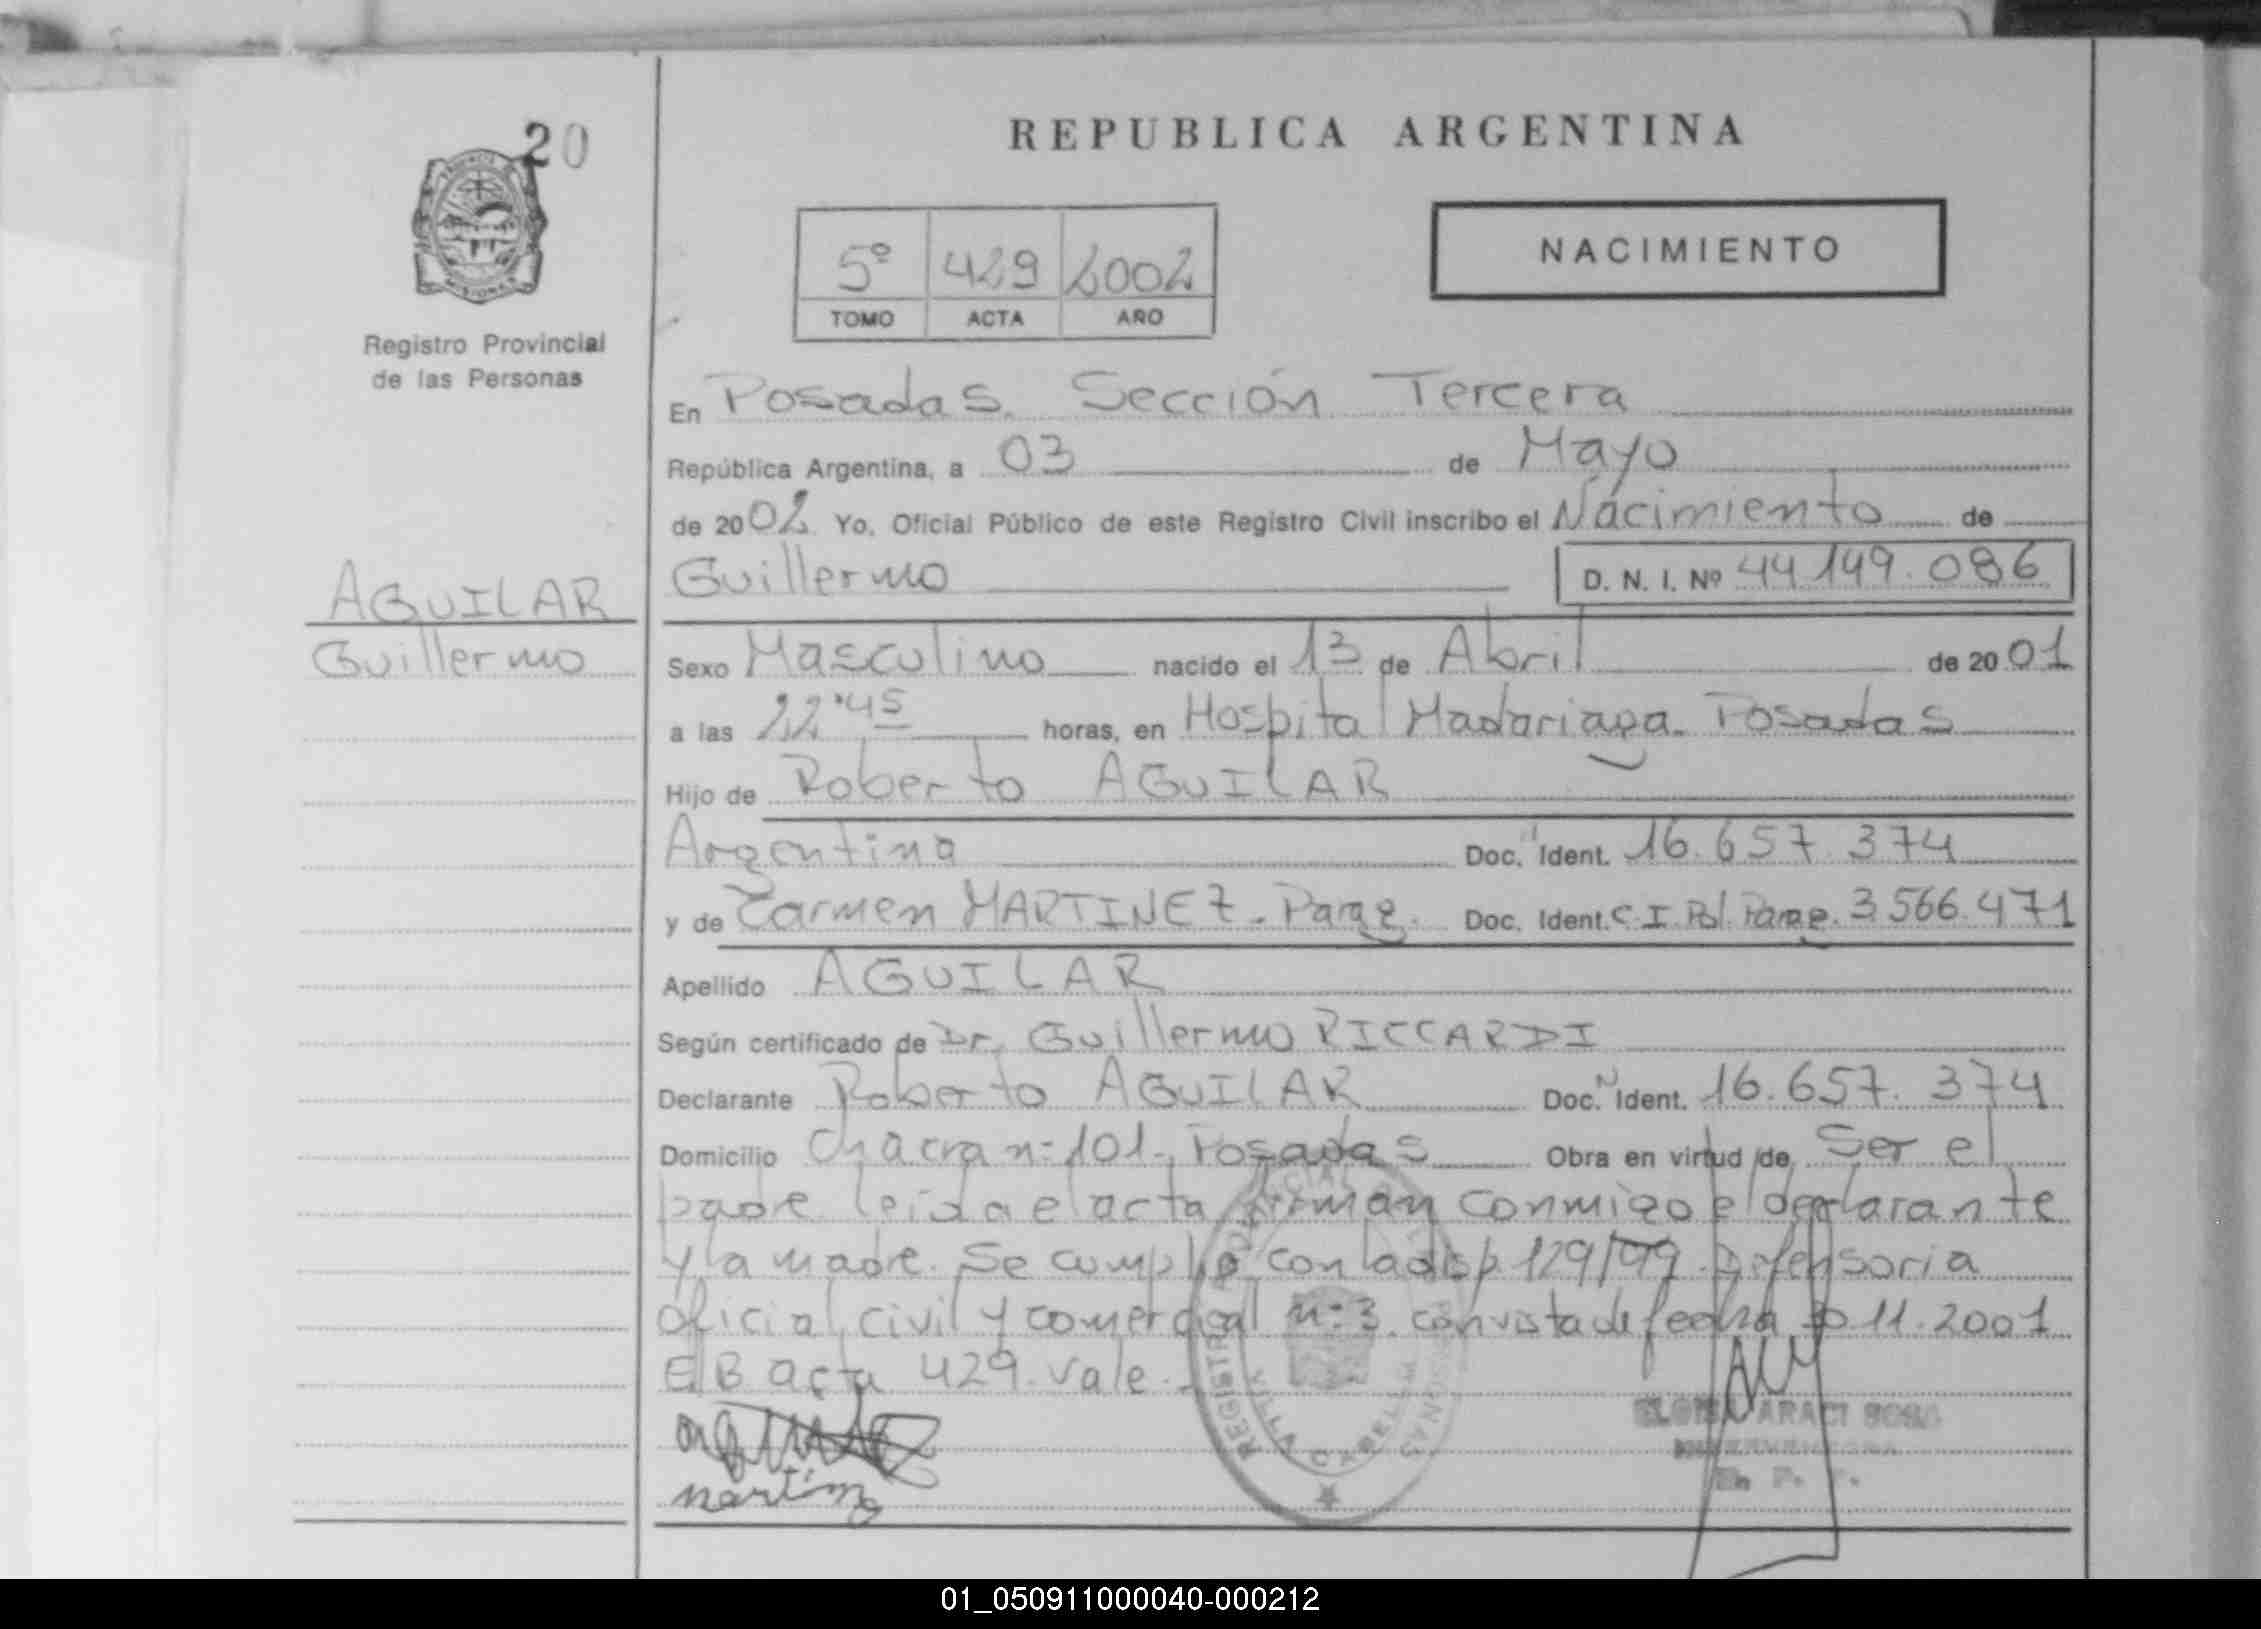 20
REPUBLICA ARGENTINA
NACIMIENTO
5º 429 2002
TOMO ACTA AÑO
Registro Provincial
de las Personas
En Posadas. Sección Tercera
República Argentina, a 03 de Mayo
de 2002 Yo, Oficial Público de este Registro Civil inscribo el Nacimiento de
Guillermo D. N. I. Nº 44.149.086
AGUILAR
Guillermo
Sexo Masculino nacido el 13 de Abril de 2001
a las 22:45 horas, en Hospital Madariaga. Posadas
Hijo de Roberto AGUILAR
Argentina Doc. Ident. 16.657.374
y de Carmen MARTINEZ - Parag. Doc. Ident. C.I. Pol. Parag. 3.566.471
Apellido AGUILAR
Según certificado de Dr. Guillermo RICCARDI
Declarante Roberto AGUILAR Doc. Ident. 16.657.374
Domicilio Chacra nº 101. Posadas Obra en virtud de Ser el
padre leida el acta firman conmigo el declarante
y la madre. Se cumplio con la disp 129/99. Defensoria
oficial civil y comercial nº 3. con vista de fecha 11.2001
E/B acta 429. vale.
martinz
REGISTRO PROVINCIAL
VILLA CABELLO
ARACI SOSA
01_050911000040-000212